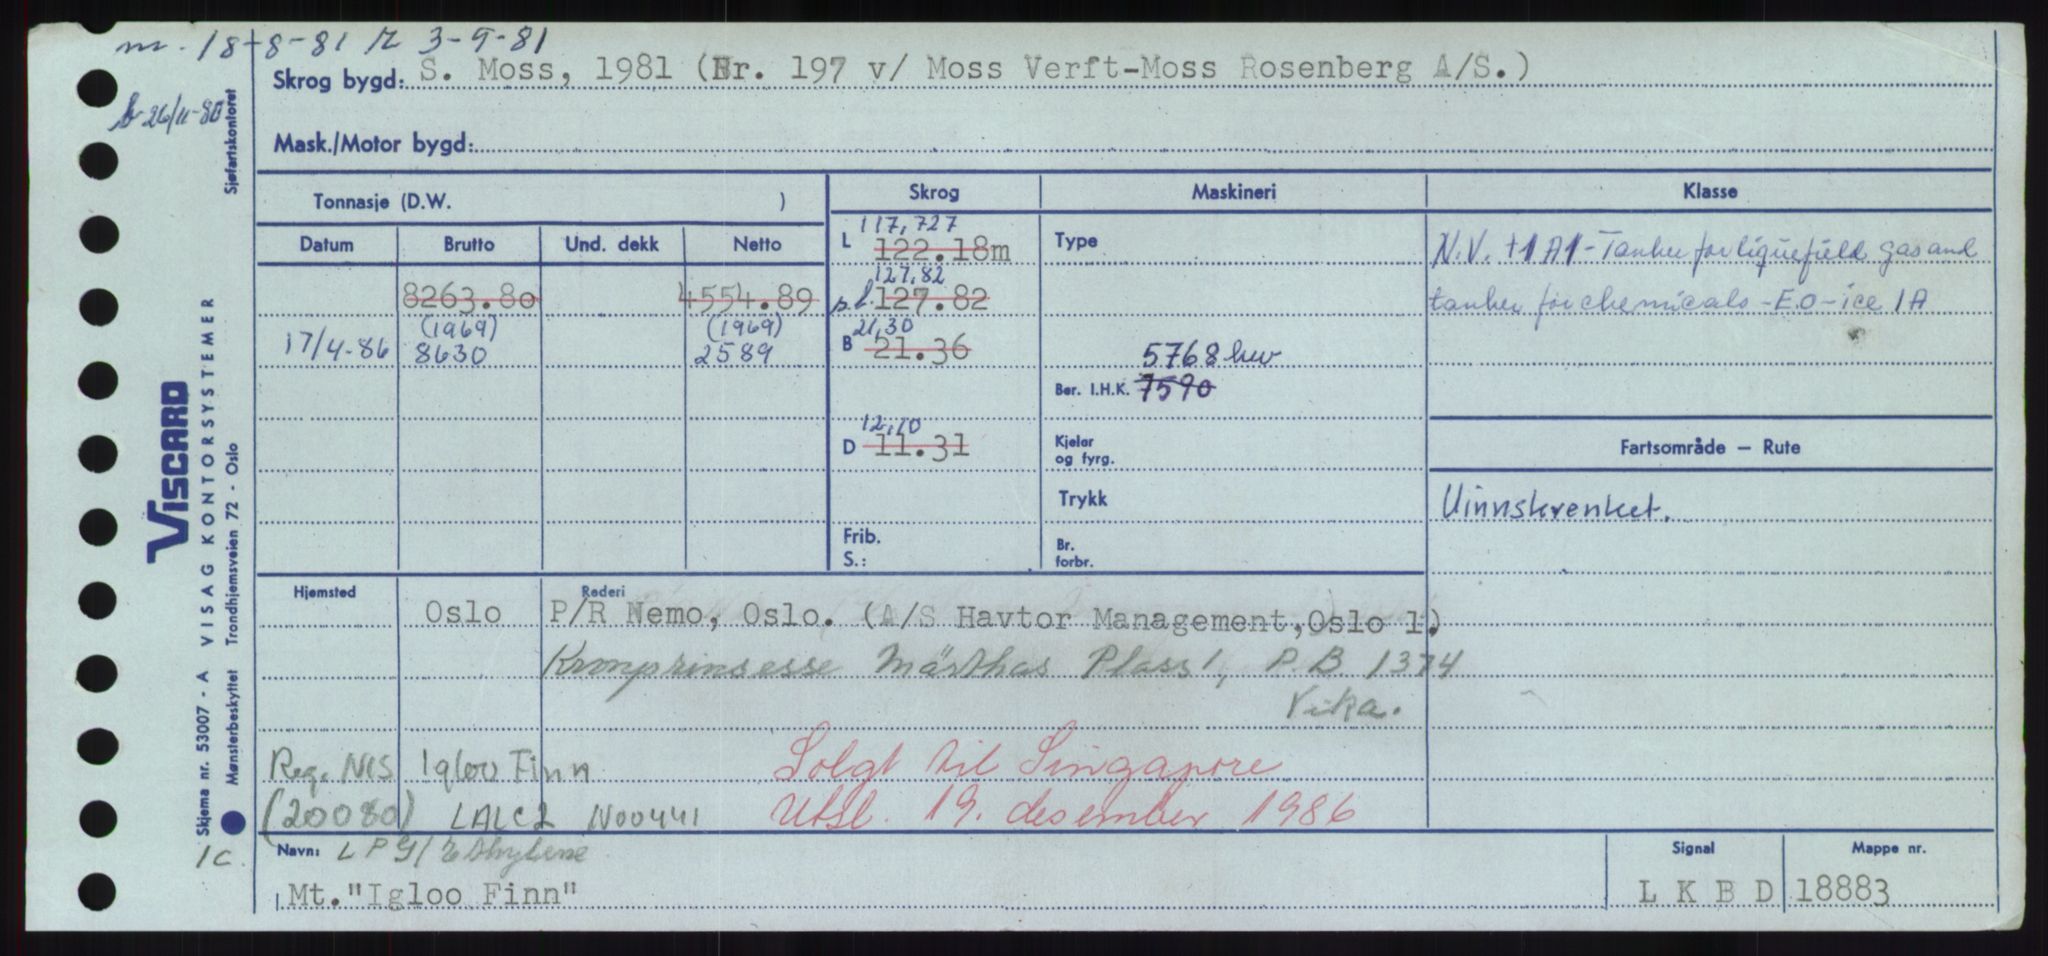 m. 18-8-81 12 3-9-81
Skrog bygd: S. Moss, 1981 (Nr. 197 v/ Moss Verft-Moss Rosenberg A/S.)
b 26/11-80
Mask./Motor bygd:
Sjøfartskontoret
Tonnasje (D.W. )
Skrog
Maskineri
Klasse
Datum Brutto Und. dekk Netto
L 117,727
122.18m
Type
N.V. +1A1-Tanker for liquefield gas and
8263.80 4554.89
127,82
p.l. 127.82
tanker for chemicals -EO-ice 1A
17/4-86 (1969) 8630 (1969) 2589
B 21,30
21.36
5768 kw
Ber. I.H.K. 7590
D 12,10
11.31
Kjeler
og fyrg.
Fartsområde — Rute
Trykk
Uinnskrenket.
Frib.
S.:
Br.
forbr.
Hjemsted Oslo
Rederi
P/R Nemo, Oslo. (A/S Havtor Management, Oslo 1.)
Kronprinsesse Märthas Plass 1, P.B 1374
Vika.
Reg. NIS Igloo Finn
Solgt til Singapore
(20080) LALC2 N00441
Utsl. 19. desember 1986
1C.
Navn: LPG/Ethylene
Mt. "Igloo Finn"
Signal
L K B D
Mappe nr.
18883
VISCARD
VISAG KONTORSYSTEMER
Trondhjemsveien 72 - Oslo
Skjema nr. 53007 - A
Mønsterbeskyttet